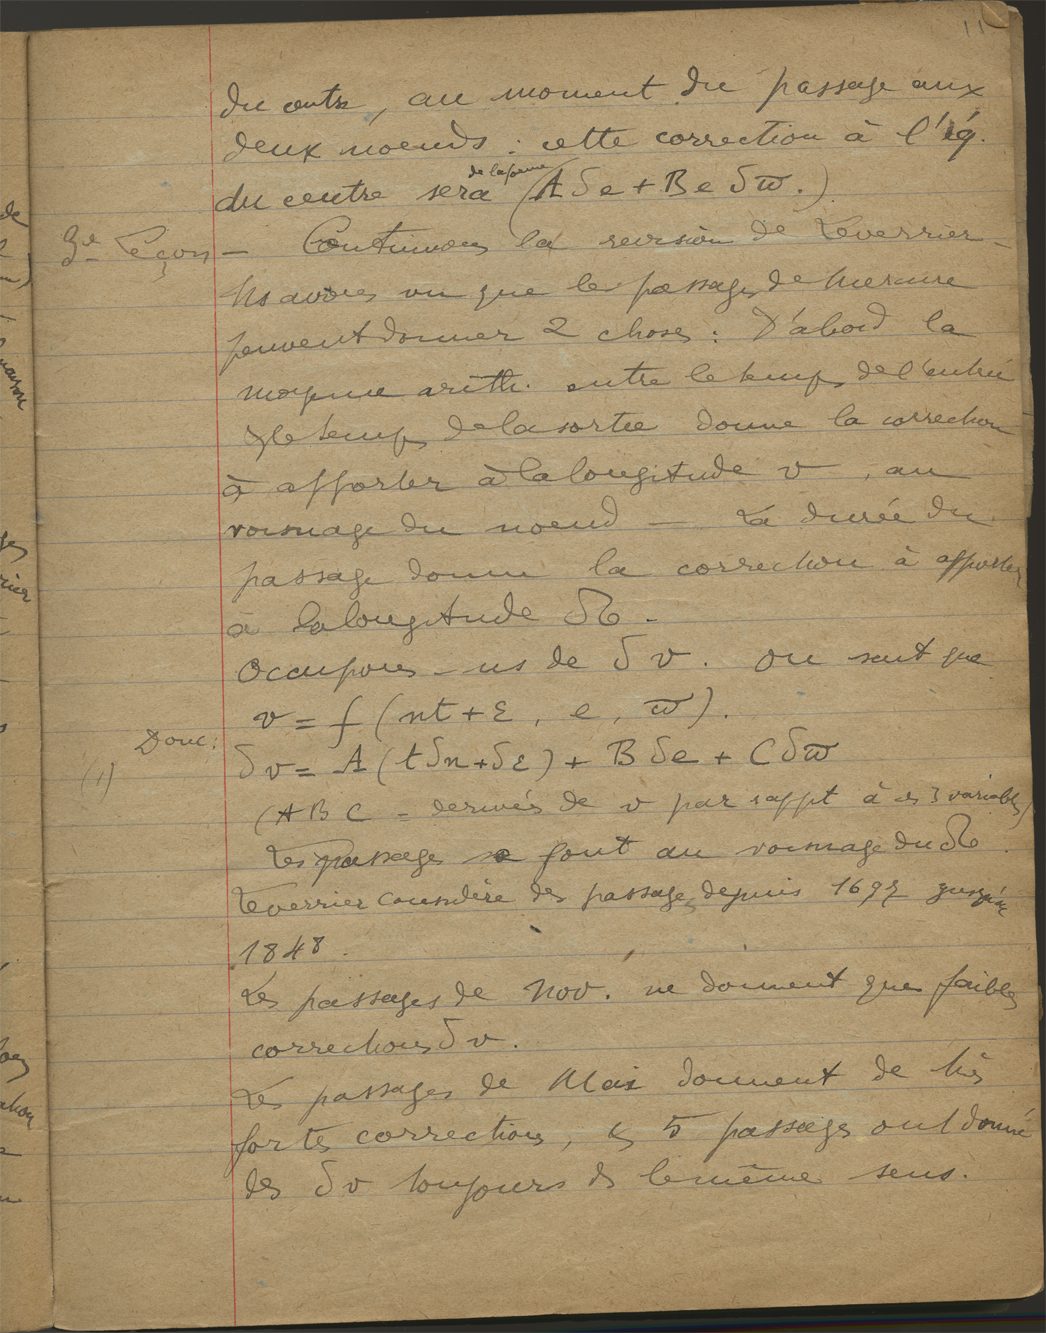 11
du centre, au moment du passage aux
deux noeuds : cette correction à l'éq.
de la forme
du centre sera (A δe + B e δϖ.)
3e Leçon — Continuons la revision de Leverrier —
Ns avons vu que les passages de Mercure
peuvent donner 2 choses : D'abord la
moyenne arith. entre le temps de l'entrée
& le temps de la sortie donne la correction
à apporter à la longitude v, au
voisinage du noeud — La durée du
passage donne la correction à apporter
à la longitude ☊.
Occupons-ns de δv. On sait que
v = f (nt + ε, e, ϖ).
Donc :
(1) δv = A (t δn + δε) + B δe + C δϖ
(A B C = dérivées de v par rappt à ces 3 variables)
Les passages se font au voisinage du ☊.
Leverrier considère des passages depuis 1697 jusqu'en
1848.
Les passages de Nov. ne donnent que faibles
corrections δv.
Les passages de Mai donnent de très
fortes corrections, les 5 passages ont donné
des δv toujours ds le même sens.